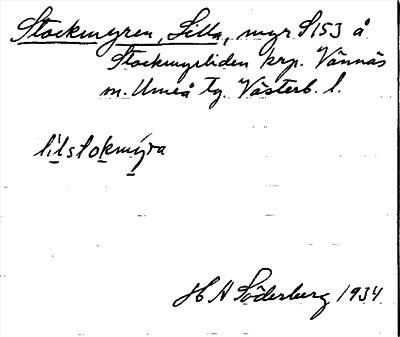 Stockmyren, Lilla, myr S153 å
Stockmyrliden krp. Vännäs
m. Umeå tg. Västerb. l.
lilstokmýra
H A Söderberg 1934